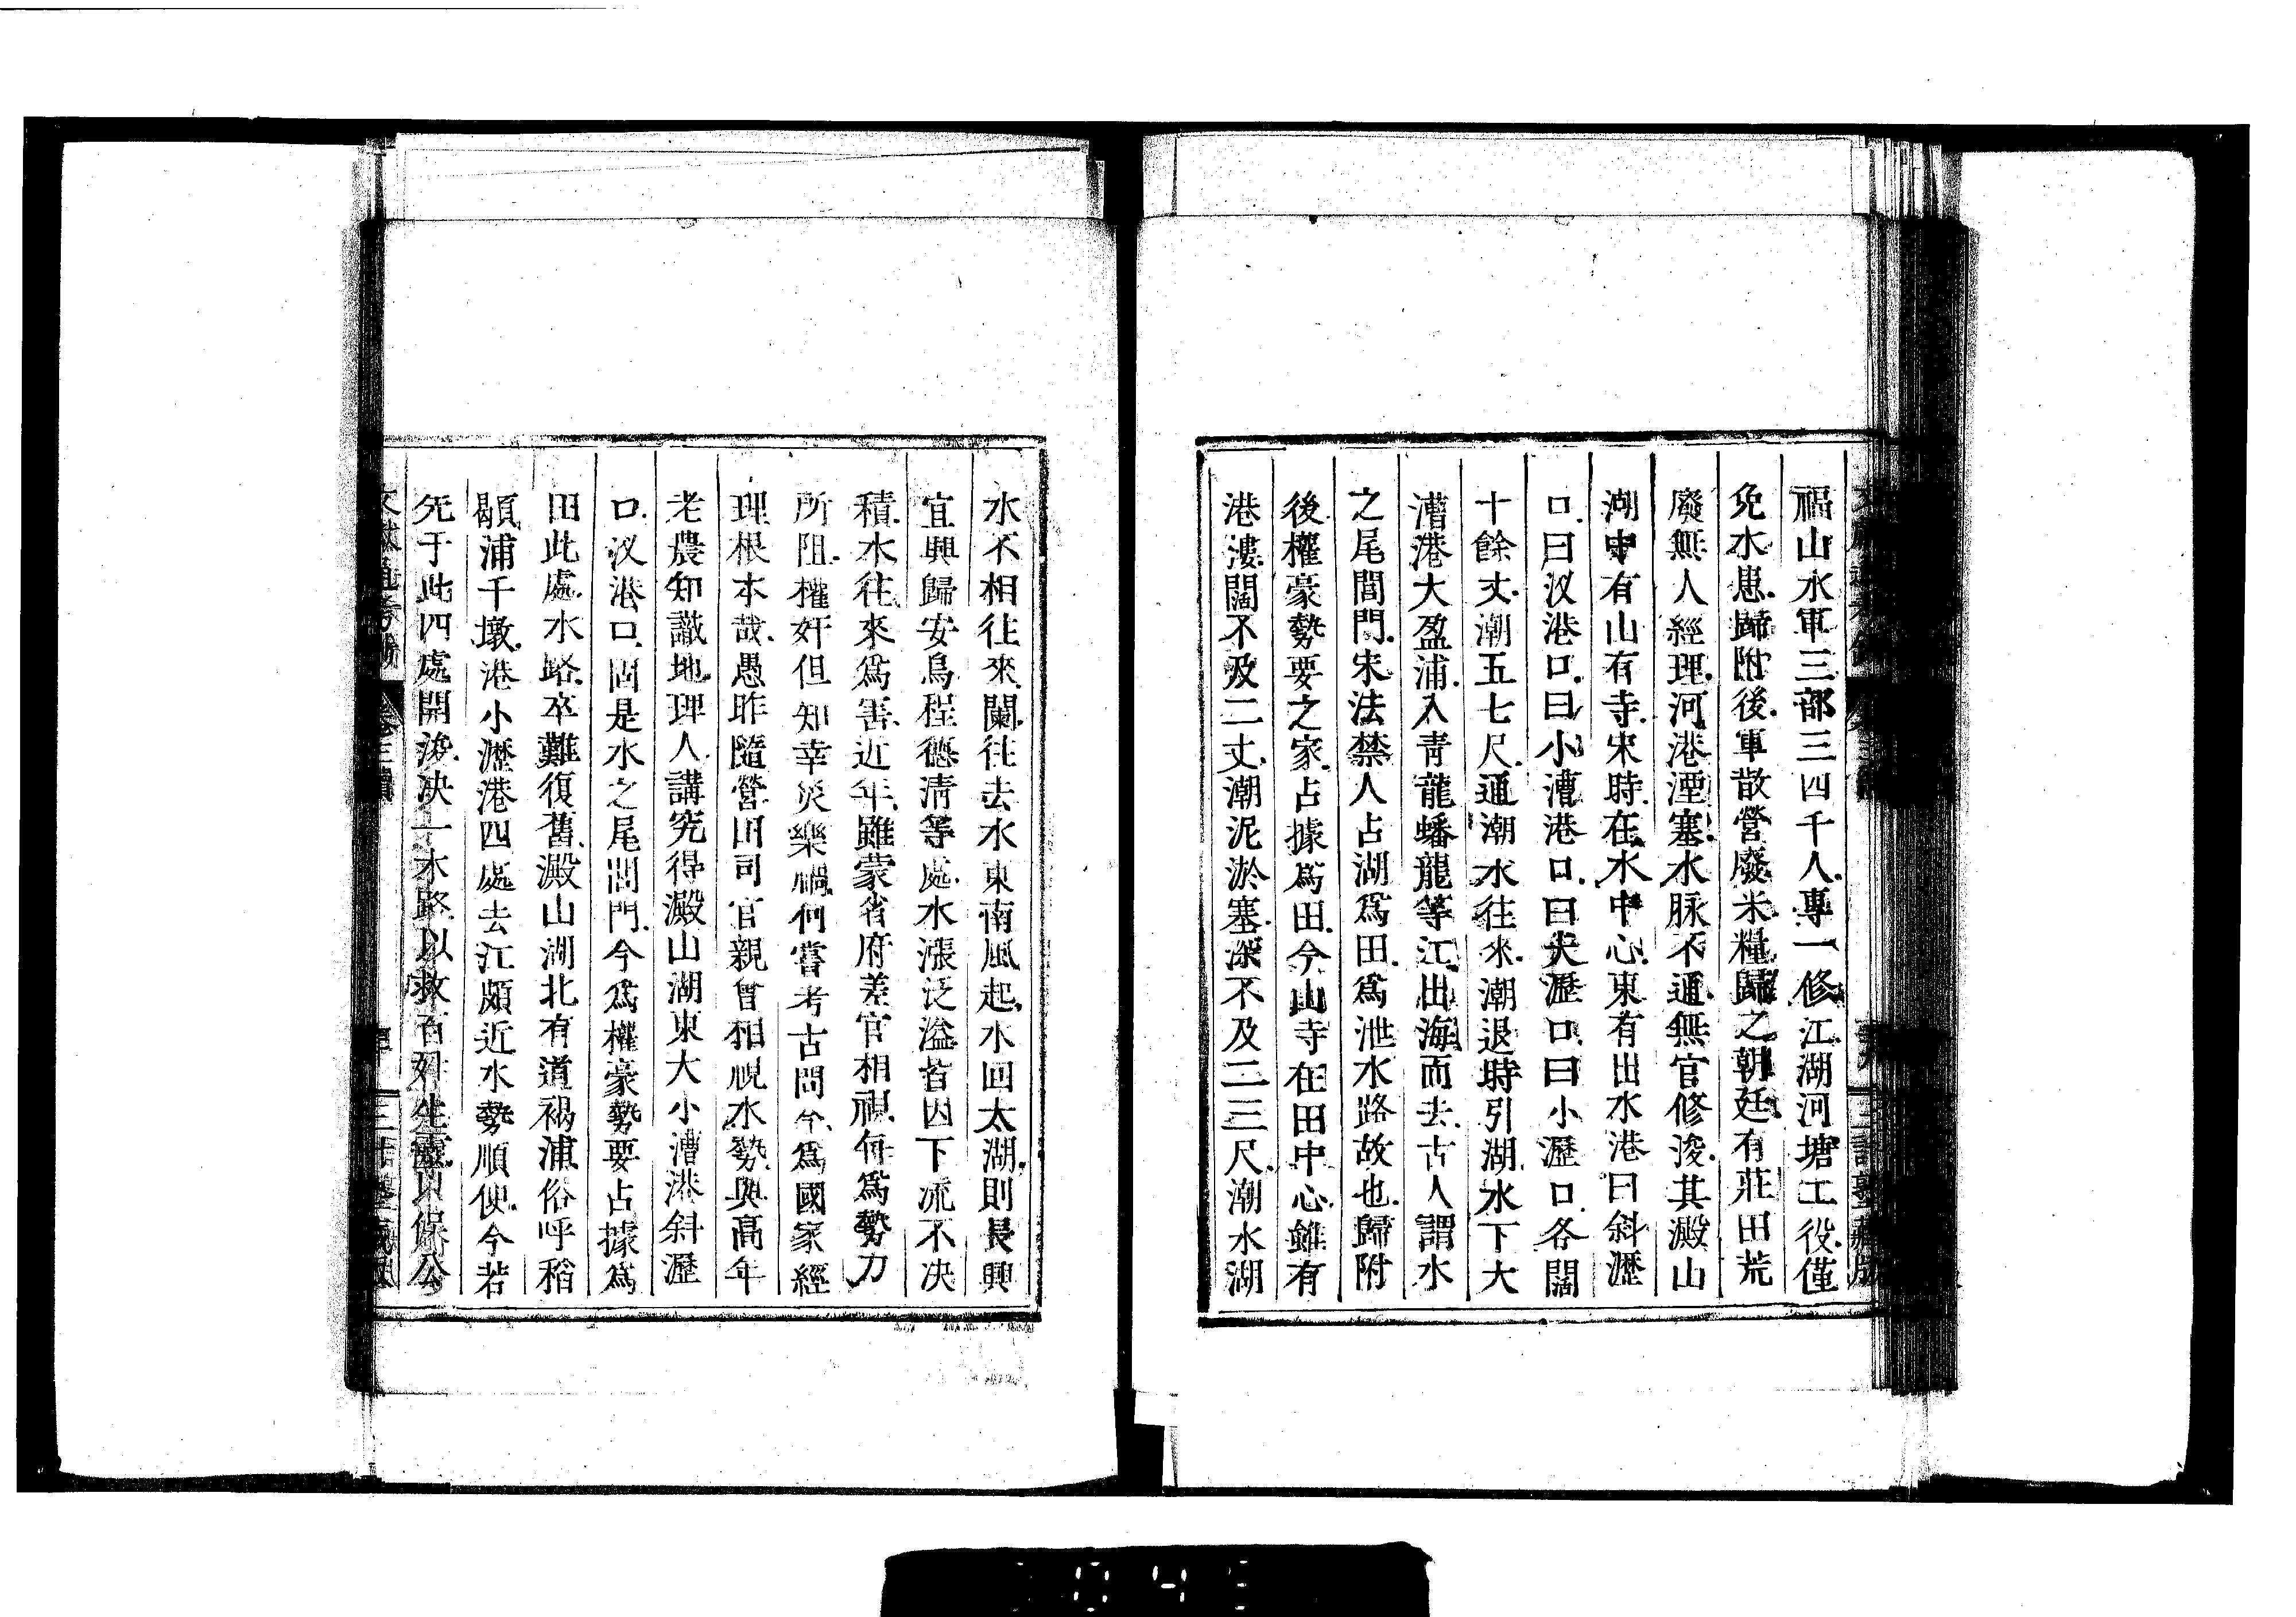 福山水軍三部三四千人專一修江湖河塘工役僅
免水患歸附後軍散營廢米糧歸之朝廷有莊田荒
廢無人經理河港湮塞水脉不通無官修浚其澱山
湖中有山有寺宋時在水中心東有出水港曰斜瀝
口曰汊港口曰小漕港口曰大瀝口曰小瀝口各闊
十餘丈潮五七尺通潮水往來潮退時引湖水下大
漕港大盈浦入青龍蟠龍等江出海而去古人謂水
之尾閭門宋法禁人占湖爲田爲泄水路故也歸附
後權豪勢要之家占據爲田今山寺在田中心雖有
港漊闊不及二丈潮泥淤塞深不及二三尺潮水湖
水不相往來闌往去水東南風起水回太湖則長興
宜興歸安烏程德清等處水漲泛溢皆因下流不决
積水往來爲害近年雖蒙省府差官相視何爲勢力
所阻權奸但知幸災樂禍何嘗考古問今爲國家經
理根本哉愚昨隨營田司官親曾相視水勢與高年
老農知識地理人講究得澱山湖東大小漕港斜瀝
口汊港口固是水之尾閭門今爲權豪勢要占據爲
田此處水路卒難復舊澱山湖北有道褐浦俗呼稻
顧浦千墩港小瀝港四處去江頗近水勢順便今若
先于此四處開浚决一水路以救百姓生靈以保公